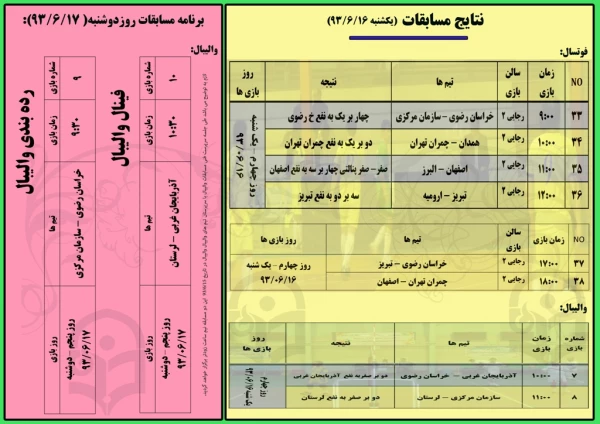 نتایج مسابقات (یکشنبه ۹۳/۶/۱۶)
فوتسال:
NO زمان بازی سالن بازی تیم ها نتیجه روز بازی ها
۳۳ ۹:۰۰ رجایی ۲ خراسان رضوی – سازمان مرکزی چهار بر یک به نفع خ رضوی
۳۴ ۱۰:۰۰ رجایی ۲ همدان – چمران تهران دو بر یک به نفع چمران تهران
۳۵ ۱۱:۰۰ رجایی ۲ اصفهان – البرز صفر – صفر پنالتی چهار بر سه به نفع اصفهان
۳۶ ۱۲:۰۰ رجایی ۲ تبریز – ارومیه سه بر دو به نفع تبریز
روز چهارم – یک شنبه
۹۳/۰۶/۱۶
NO زمان بازی سالن بازی تیم ها روز بازی ها
۳۷ ۱۷:۰۰ رجایی ۲ خراسان رضوی – تبریز روز چهارم – یک شنبه
۳۸ ۱۸:۰۰ رجایی ۲ چمران تهران – اصفهان ۹۳/۰۶/۱۶
والیبال:
شماره بازی زمان بازی تیم ها نتیجه روز بازی ها
۷ ۱۰:۰۰ آذربایجان غربی – خراسان رضوی دو بر صفر به نفع آذربایجان غربی
۸ ۱۱:۰۰ سازمان مرکزی – لرستان دو بر صفر به نفع لرستان
روز چهارم
یکشنبه ۹۳/۶/۱۶
برنامه مسابقات روز دوشنبه( ۹۳/۶/۱۷):
والیبال:
فینال والیبال
شماره بازی زمان بازی تیم ها روز بازی
۱۰ ۱۰:۳۰ آذربایجان غربی – لرستان روز پنجم – دوشنبه ۹۳/۰۶/۱۷
رده بندی والیبال
شماره بازی زمان بازی تیم ها روز بازی
۹ ۹:۳۰ خراسان رضوی – سازمان مرکزی روز پنجم – دوشنبه ۹۳/۰۶/۱۷